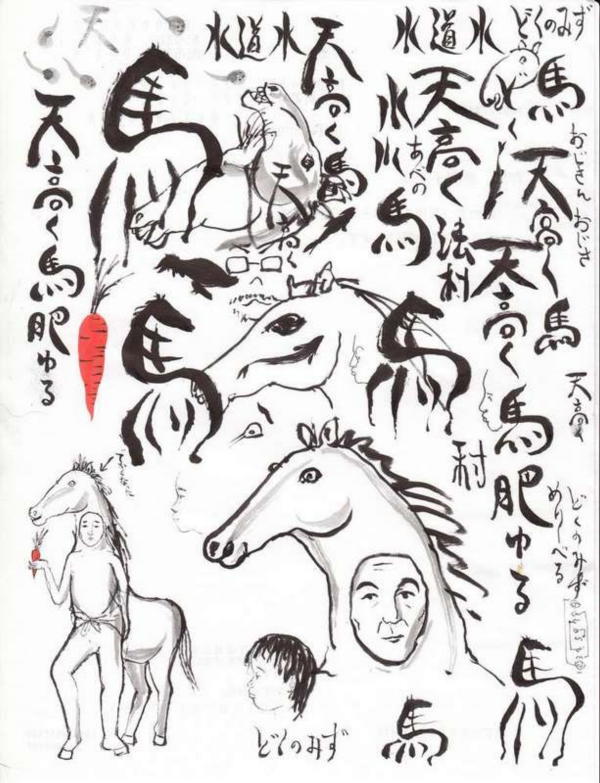 どくのみず
馬
おじさん おじさ
天高く馬
天高く
水道水
天高く馬肥ゆる
どくのみず
めりーべる
天高く
法村
あべの
水
馬
村
水道水
天高く馬
天高く
天
馬
天高く馬肥ゆる
馬
馬
馬
馬
どくのみず